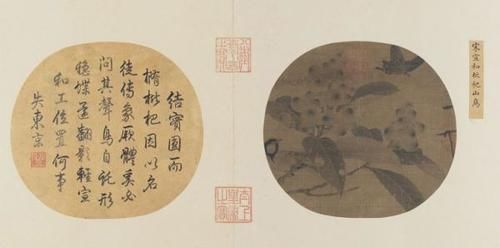 宋宣和枇杷山鳥
結實圓而
楕枇杷因以名
徒傳象厥體奚必
問其聲鳥自託形
穩蝶還翻影輕宣
和工位置何事
失東京